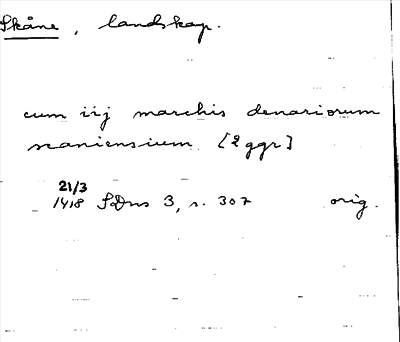 Skåne, landskap.
cum iij marchis denariorum
scaniensium [2 ggr]
21/3
1418 SDns 3, s. 307 orig.